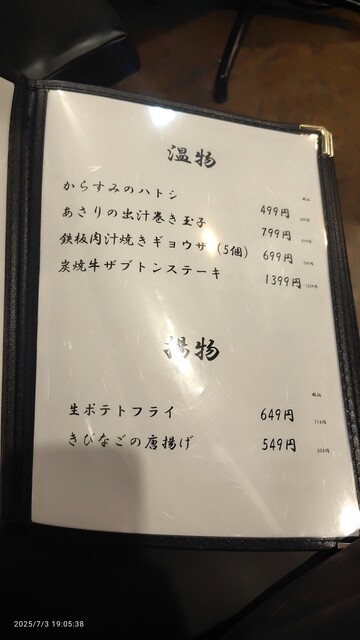 温物
税込
からすみのハトシ 499円
あさりの出汁巻き玉子 799円
鉄板肉汁焼きギョウザ (5個) 699円
炭焼牛ザブトンステーキ 1399円
揚物
税込
生ポテトフライ 649円
きびなごの唐揚げ 549円
2025/7/3 19:05:38